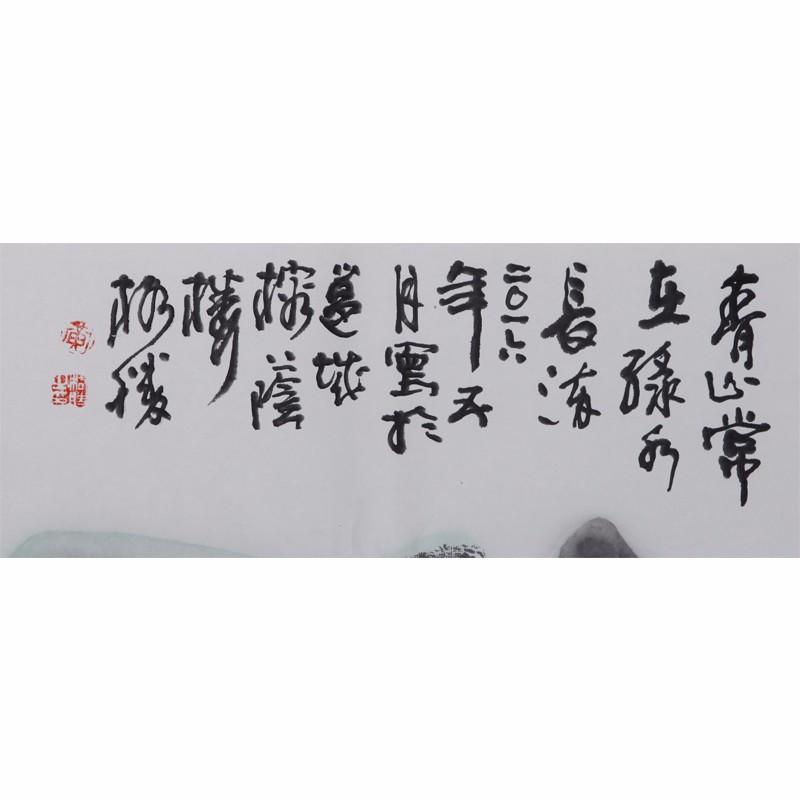 青山常
在綠水
長流
二〇一六
年五
月寫於
邕城
榕蔭
樓
勝